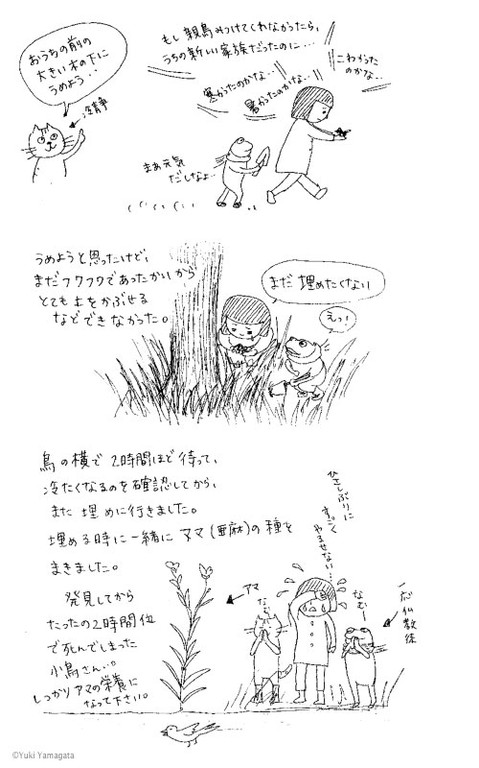 おうちの前の
大きい木の下に
うめよう‥
冷静
もし親鳥みつけてくれなかったら、
うちの新しい家族だったのに‥‥
寒かったのかな‥
暑かったのかな‥
こわかった
のかな‥
まぁ元気
だしなよ‥
うめようと思ったけど、
まだフワフワであったかいから
とても土をかぶせる
などできなかった。
まだ埋めたくない
えっ！
鳥の横で2時間ほど待って、
冷たくなるのを確認してから、
また埋めに行きました。
埋める時に一緒にアマ(亜麻)の種を
まきました。
発見してから
たったの2時間位
で死んでしまった
小鳥さん‥。
しっかりアマの栄養に
なって下さい。
アマ
ひさしぶりに
すっごく
やるせない‥‥
なむー
©Yuki Yamagata